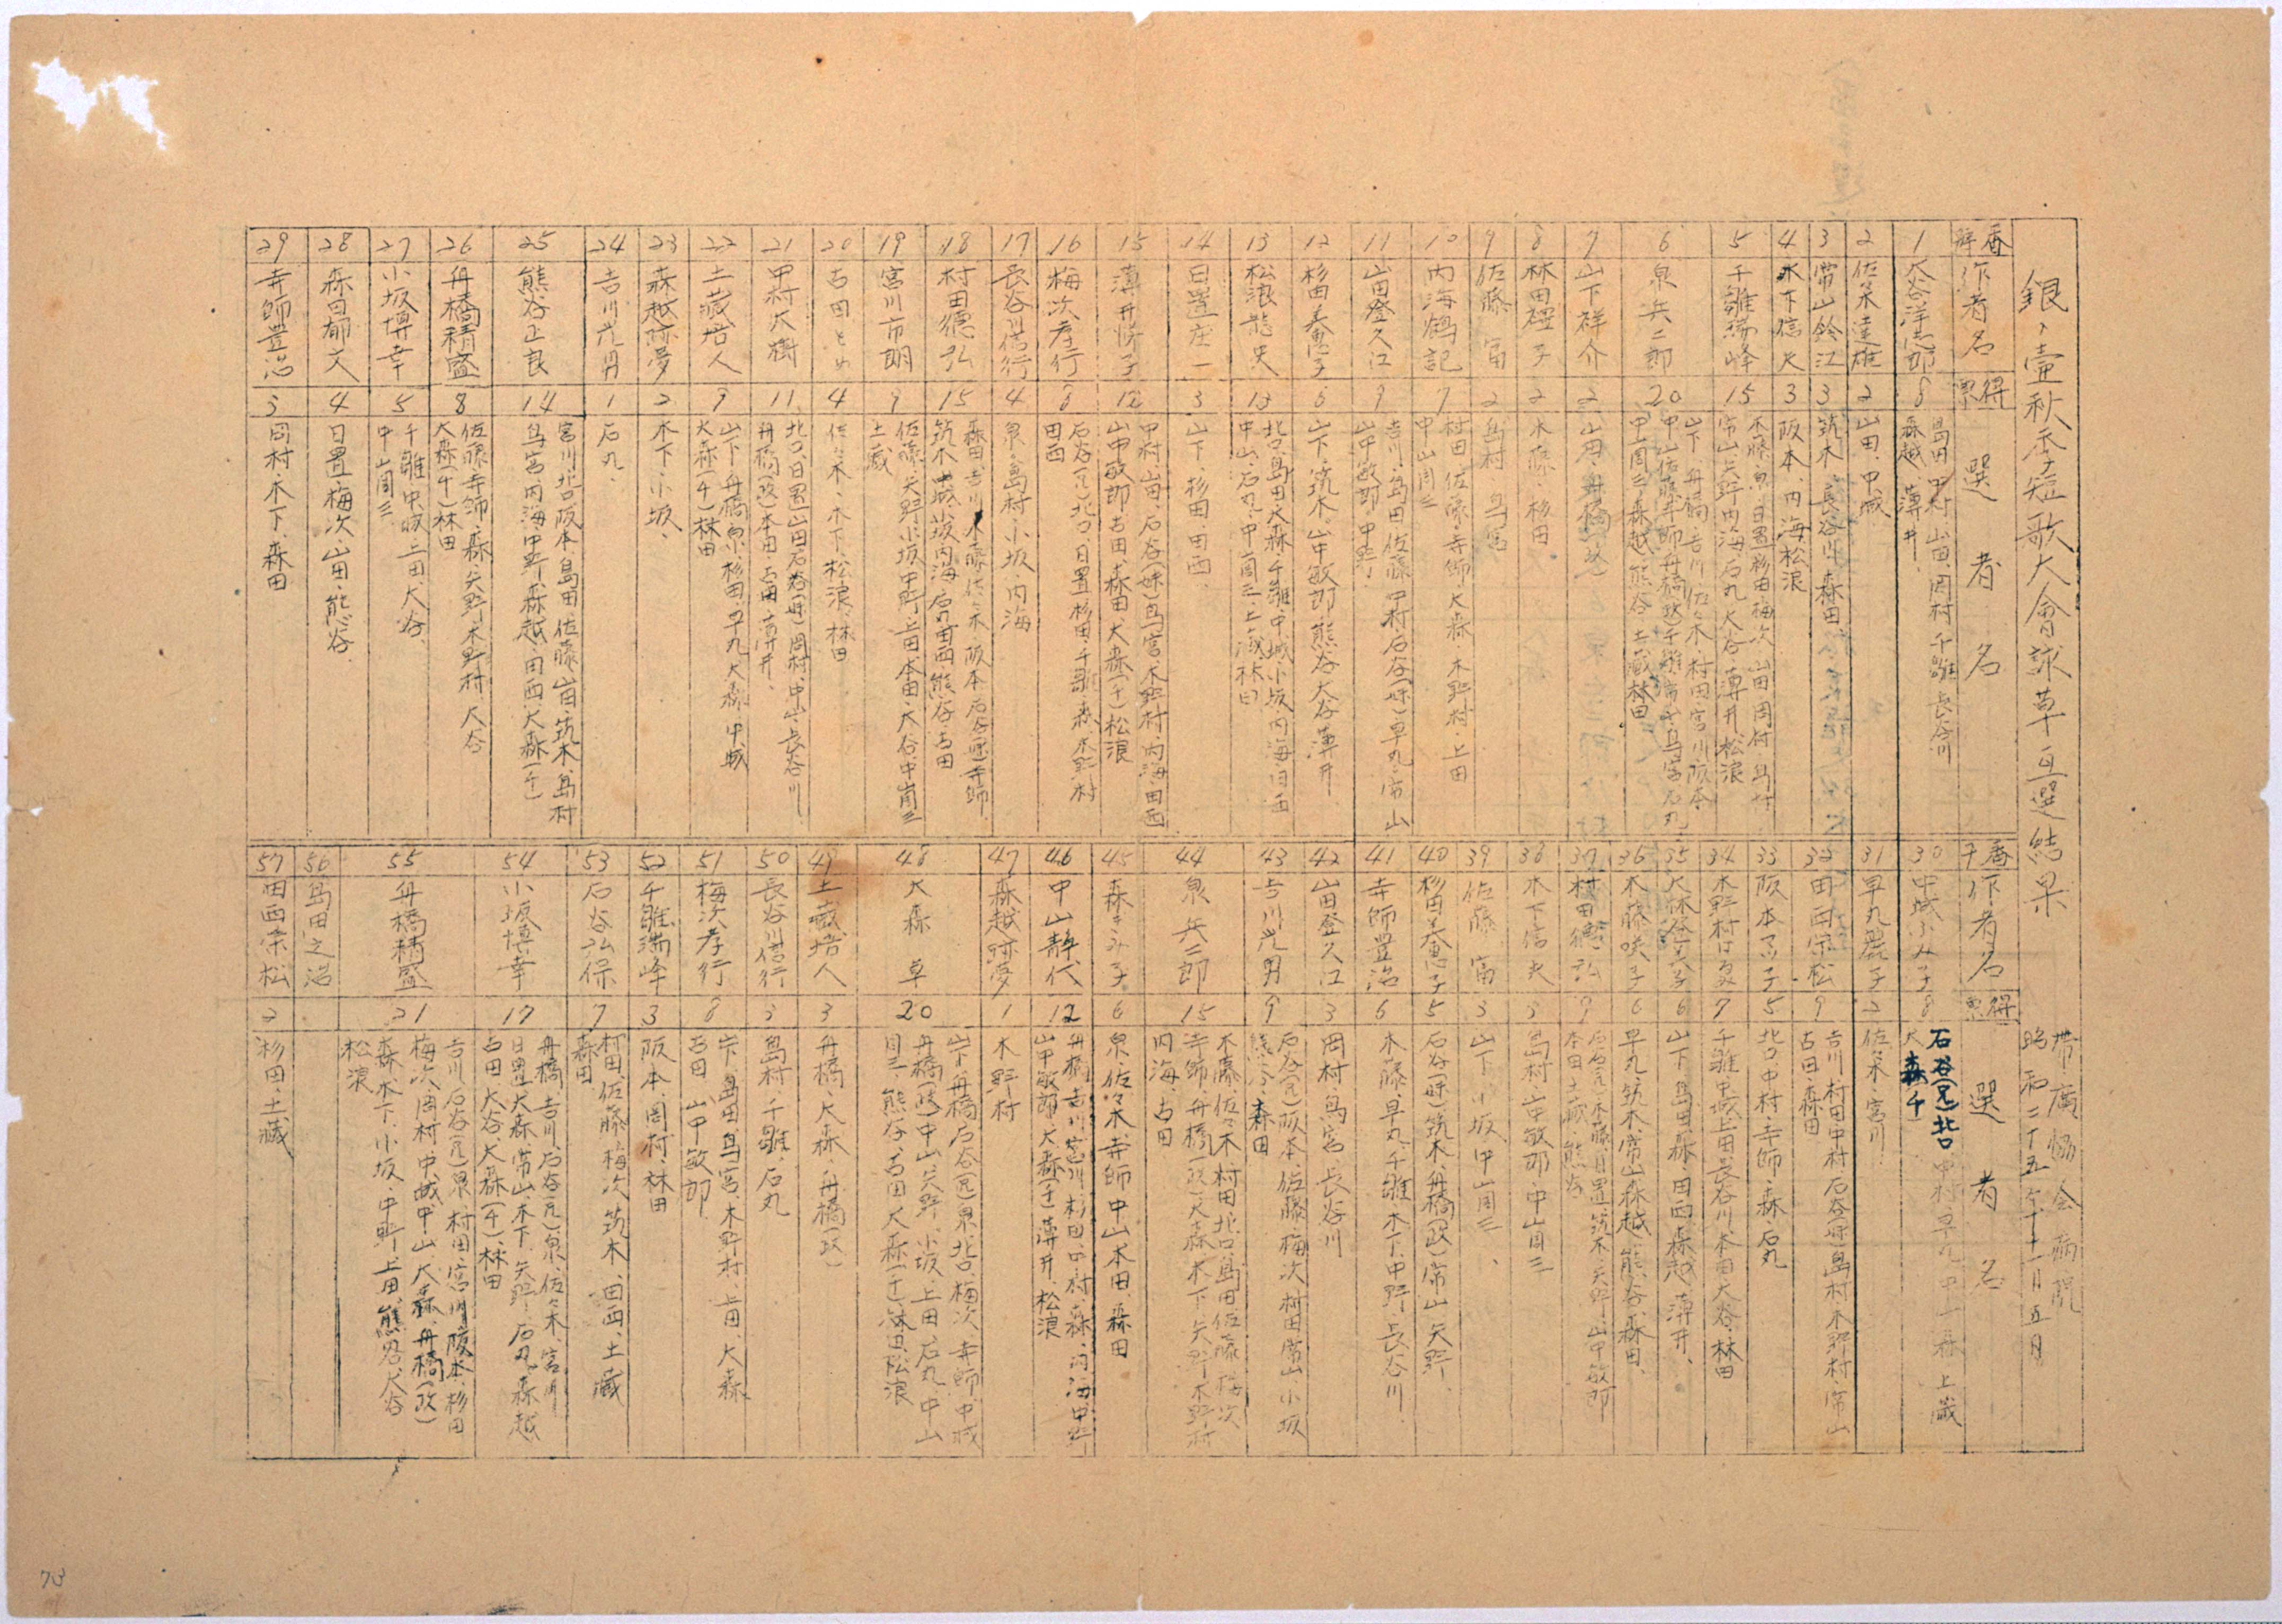 銀の壷秋季短歌大會詠草互選結果
帯廣協会病院
昭和二十五年十一月五日
番号 作者名 得票 選者名
1 大谷洋志郎 8 島田、中村、山田、岡村、千雛、長谷川
森越、薄井、
2 佐々木達雄 2 山田、中城
3 常山鈴江 3 筑木、長谷川、森田
4 木下信夫 3 阪本、内海、松浪
5 千雛瑞峰 15 木藤、泉、日置、杉田、梅次、山田、岡村、島村
常山、矢野、内海、石丸、大谷、薄井、松浪
6 泉兵二郎 20 山下、舟橋、吉川、佐々木、村田、宮川、阪本
7 山下祥介 2 山田、舟橋(政)
8 林田礎子 2 木藤、杉田
9 佐藤富 2 島村、鳥宮
10 内海鶴記 7 村田、佐藤、寺師、大森、木野村、上田
中山周三
11 山田登久江 9 吉川、島田、佐藤、中村、石谷(妹)早丸、常山
山中敏郎、中野、
12 杉田美恵子 6 山下、筑木、山中敏郎、熊谷、大谷、薄井
13 松浪龍夫 13 北口、島田、大森、千雛、中城、小坂、内海、田西
中山、石丸、中山周三、土蔵、林田
14 日置庄一 3 山下、杉田、田西、
15 薄井悌子 12 中村、山田、石谷(妹)鳥宮、木野村、内海、田西
山中敏郎、古田、森田、大森(千)松浪
16 梅次孝行 8 石谷(兄)北口、日置、杉田、千雛、森、木野村
田西
17 長谷川信行 4 泉、島村、小坂、内海
18 村田徳弘 15 森田、吉川、木藤、佐々木、阪本、石谷(兄)寺師、
筑木、中城、小坂、内海、石丸、田西、熊谷、古田
19 宮川市朗 9 佐藤、矢野、小坂、中野、上田、本田、大谷、中山周三
土蔵
20 古田とめ 4 佐々木、木下、松浪、林田
21 中村大樹 11 北口、日置、山田、石谷(妹)岡村、中山、長谷川、
舟橋(政)本田、古田、薄井、
22 土蔵培人 9 山下、舟橋、泉、杉田、早丸、大森、中城
大森(千)林田
23 森越跡夢 2 木下、小坂、
24 吉川光男 1 石丸、
25 熊谷正良 14 宮川、北口、阪本、島田、佐藤、山田、筑木、島村
鳥宮、内海、中野、森越、田西、大森(千)
26 舟橋精盛 8 佐藤、寺師、森、矢野、木野村、大谷
大森(千)林田
27 小坂博幸 5 千雛、中城、上田、大谷、
中山周三
28 森田郁文 4 日置、梅次、山田、熊谷
29 寺師豊治 3 岡村、木下、森田
番号 作者名 得票 選者名
30 中城ふみ子 8 石谷(兄)北口、中村、早丸、中山、森、土蔵
大森(千)
31 早丸麗子 2 佐々木、宮川、
32 田西宗松 9 吉川、村田、中村、石谷(妹)島村、木野村、常山
古田、森田
33 阪本マツ子 5 北口、中村、寺師、森、石丸
34 木野村はる 7 千雛、中城、上田、長谷川、本田、大谷、林田
35 6 山下、島田、森、田西、森越、薄井、
36 木藤咲子 6 早丸、筑木、常山、森越、熊谷、森田、
37 村田徳弘 9 石谷(兄)、木藤、日置、筑木、矢野、山中敏郎
本田、土蔵、熊谷
38 木下信夫 3 島村、山中敏郎、中山周三
39 佐藤富 3 山下、小坂、中山周三、
40 杉田美恵子 5 石谷(妹)筑木、舟橋(政)常山、矢野、
41 寺師豊治 6 木藤、早丸、千雛、木下、中野、長谷川、
42 山田登久江 3 岡村、鳥宮、長谷川
43 吉川光男 9 石谷(兄)阪本、佐藤、梅次、村田、常山、小坂
熊谷、森田
44 泉兵二郎 15 木藤、佐々木、村田、北口、島田、佐藤、梅次
寺師、舟橋(政)大森、木下、矢野、木野村
内海、古田
45 森キみ子 6 泉、佐々木、寺師、中山、本田、森田
46 中山静代 12 舟橋、吉川、宮川、杉田、中村、森、内海、中野
山中敏郎、大森(千)薄井、松浪
47 森越跡夢 1 木野村
48 大森卓 20 山下、舟橋、石谷(兄)泉、北口、梅次、寺師、中城
舟橋(政)中山、矢野、小坂、上田、石丸、中山
周三、熊谷、古田、大森(千)林田、松浪
49 土蔵培人 3 舟橋、大森、舟橋(政)
50 長谷川信行 3 島村、千雛、石丸
51 梅次孝行 8 山下、島田、鳥宮、木野村、上田、大森
古田、山中敏郎
52 千雛瑞峰 3 阪本、岡村、林田
53 石谷弘保 7 村田、佐藤、梅次、筑木、田西、土蔵
森田
54 小坂博幸 17 舟橋、吉川、石谷(兄)泉、佐々木、宮川
日置、大森、常山、木下、矢野、石丸、森越
古田、大谷、大森(千)林田
55 舟橋精盛 21 吉川、石谷(兄)泉、村田、宮川、阪本、杉田
梅次、岡村、中城、中山、大森、舟橋(政)
森、木下、小坂、中野、上田、熊谷、大谷
松浪
56 島田之治
57 田西宗松 2 杉田、土蔵
73